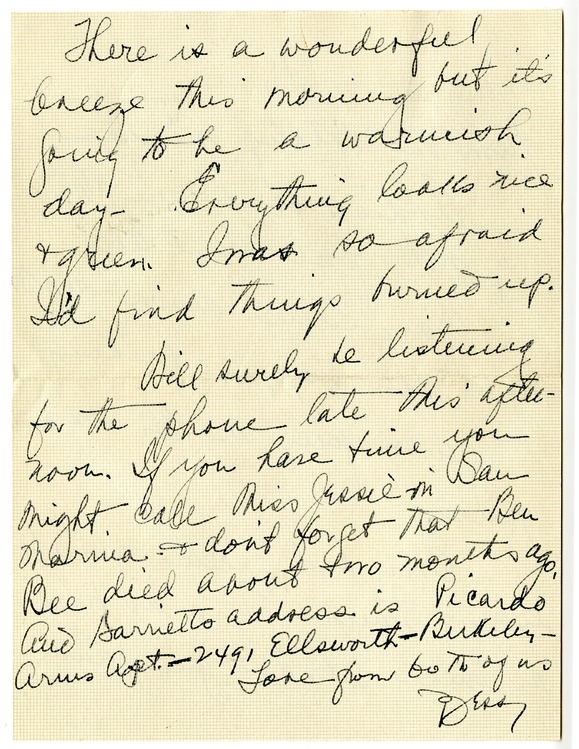 There is a wonderful
breeze this morning but it's
going to be a warmish
day - Everything looks nice
& green. I was so afraid
I'd find things burned up.
I'll surely be listening
for the phone late this after-
noon. If you have time you
might call Miss Jessie in San
Marina - & don't forget that Ben
Bee died about two months ago.
And Barrietts address is Picardo
Arms Apt. - 2491 Ellsworth - Berkeley -
Love from both of us
Bess